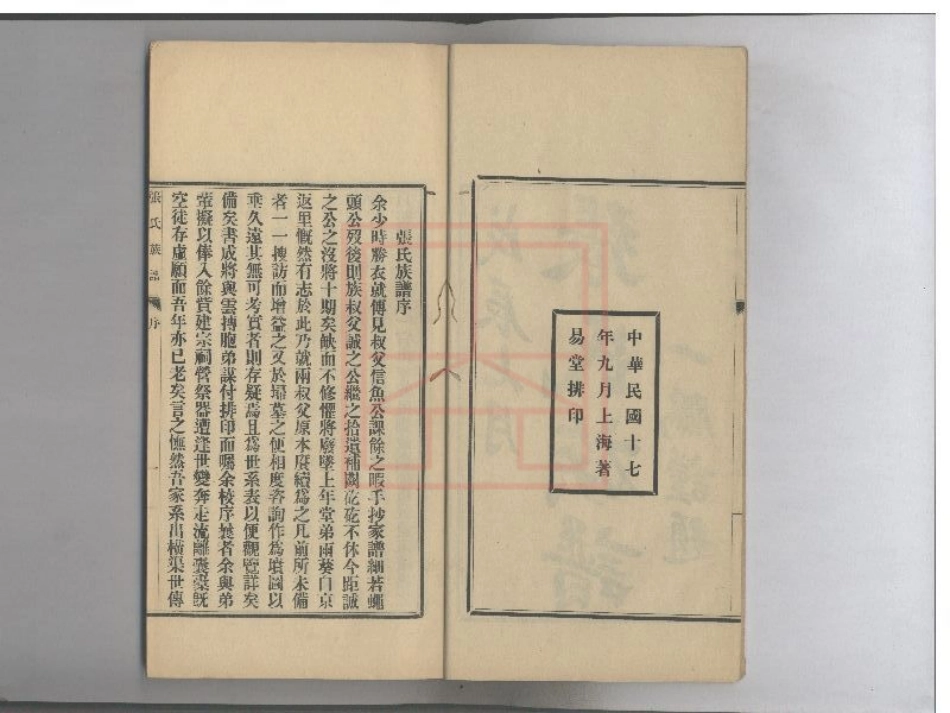 中華民國十七
年九月上海著
易堂排印
張氏族譜序
余少時勝衣就傅見叔父信魚公課餘之暇手抄家譜細若蠅
頭公歿後則族叔父誠之公繼之拾遺補闕矻矻不休今距誠
之公之沒將十期矣缺而不修懼將廢墜上年堂弟雨葵自京
返里慨然有志於此乃就兩叔父原本賡續爲之凡前所未備
者一一搜訪而增益之又於埽墓之便相度咨詢作爲墳圖以
垂久遠其無可考實者則存疑焉且爲世系表以便觀覽詳矣
備矣書成將與雲摶胞弟謀付排印而囑余校序曩者余與弟
輩擬以俸入餘貲建宗祠營祭器遭逢世變奔走流離囊橐旣
空徒存虛願而吾年亦已老矣言之憮然吾家系出橫渠世傳
張氏族譜 序 一